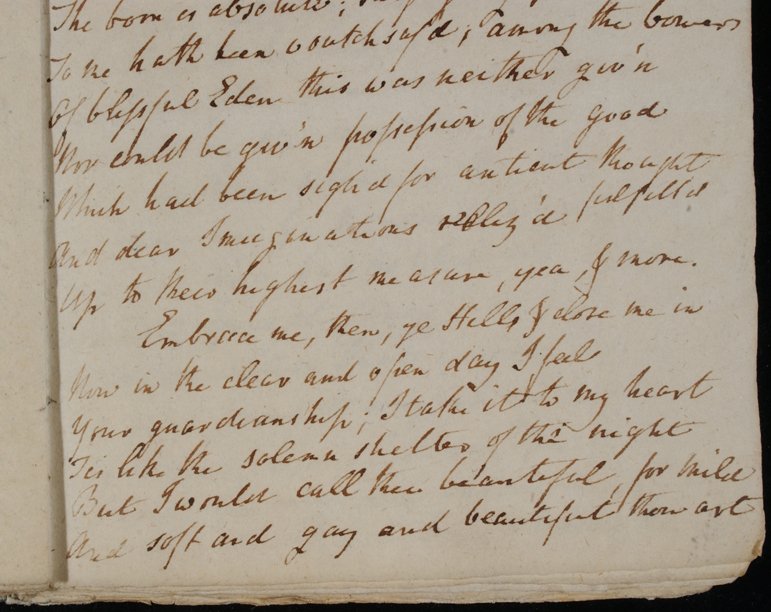 The boon is absolute;
To me hath been vouchsafd; among the bowers
Of blissful Eden this was neither giv'n
Nor could be giv'n possession of the good
Which had been sigh'd for antient thought
And dear Imaginations realiz'd fulfill'd
Up to their highest measure, yea, & more.
Embrace me, then, ye Hills & close me in
Now in the clear and open day I feel
Your guardianship; I take it to my heart
Tis like the solemn shelter of the night
But I would call thee beautiful, for mild
And soft and gay and beautiful thou art